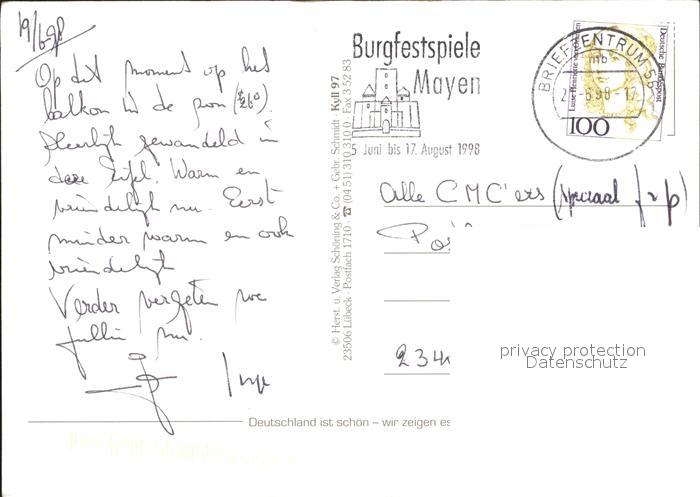 19/6 98
Op dit moment op het
balkon in de zon (± 26°).
Heerlijk gewandeld in
deze Eifel. Warm en
vriendelijk nu. Eerst
minder warm en ook
vriendelijk
Verder vergeten we
jullie nu.
Inge
© Herst. u. Verlag Schöning & Co. + Gebr. Schmidt · Kyll 97
23506 Lübeck · Postfach 1710 · ☎ (04 51) 3 10 31 0 0 · Fax 3 52 83
Burgfestspiele
Mayen
5 Juni bis 17. August 1998
BRIEFZENTRUM 56
mb
6.98-17
Deutsche Bundespost
100
Alle CMC'ers (speciaal
234
privacy protection
Datenschutz
Deutschland ist schön – wir zeigen es